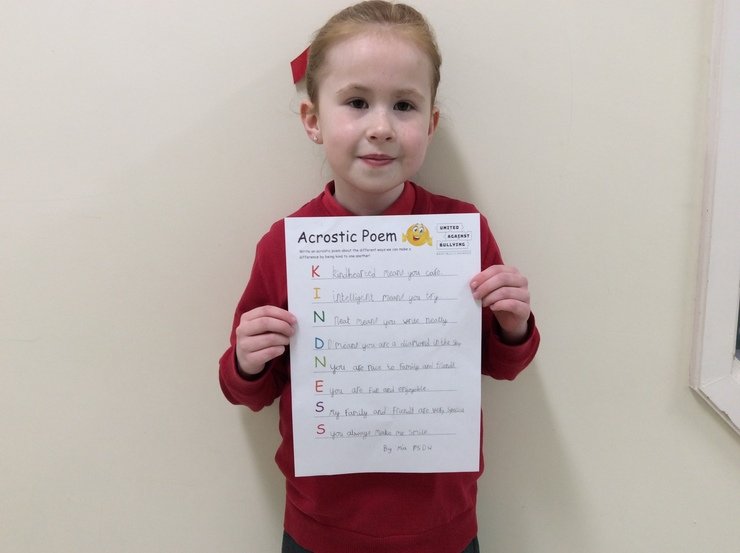 Acrostic Poem
UNITED
AGAINST
BULLYING
Write an acrostic poem about the different ways we can make a
difference by being kind to one another!
K kindhearted means you care
I intelligent means you try
N Neat means you write neatly
D D means you are a diamond in the sky
N you are nice to family and friends
E you are fun and enjoyable
S My family and friends are very special
S you always make me smile
By Mia P5DW